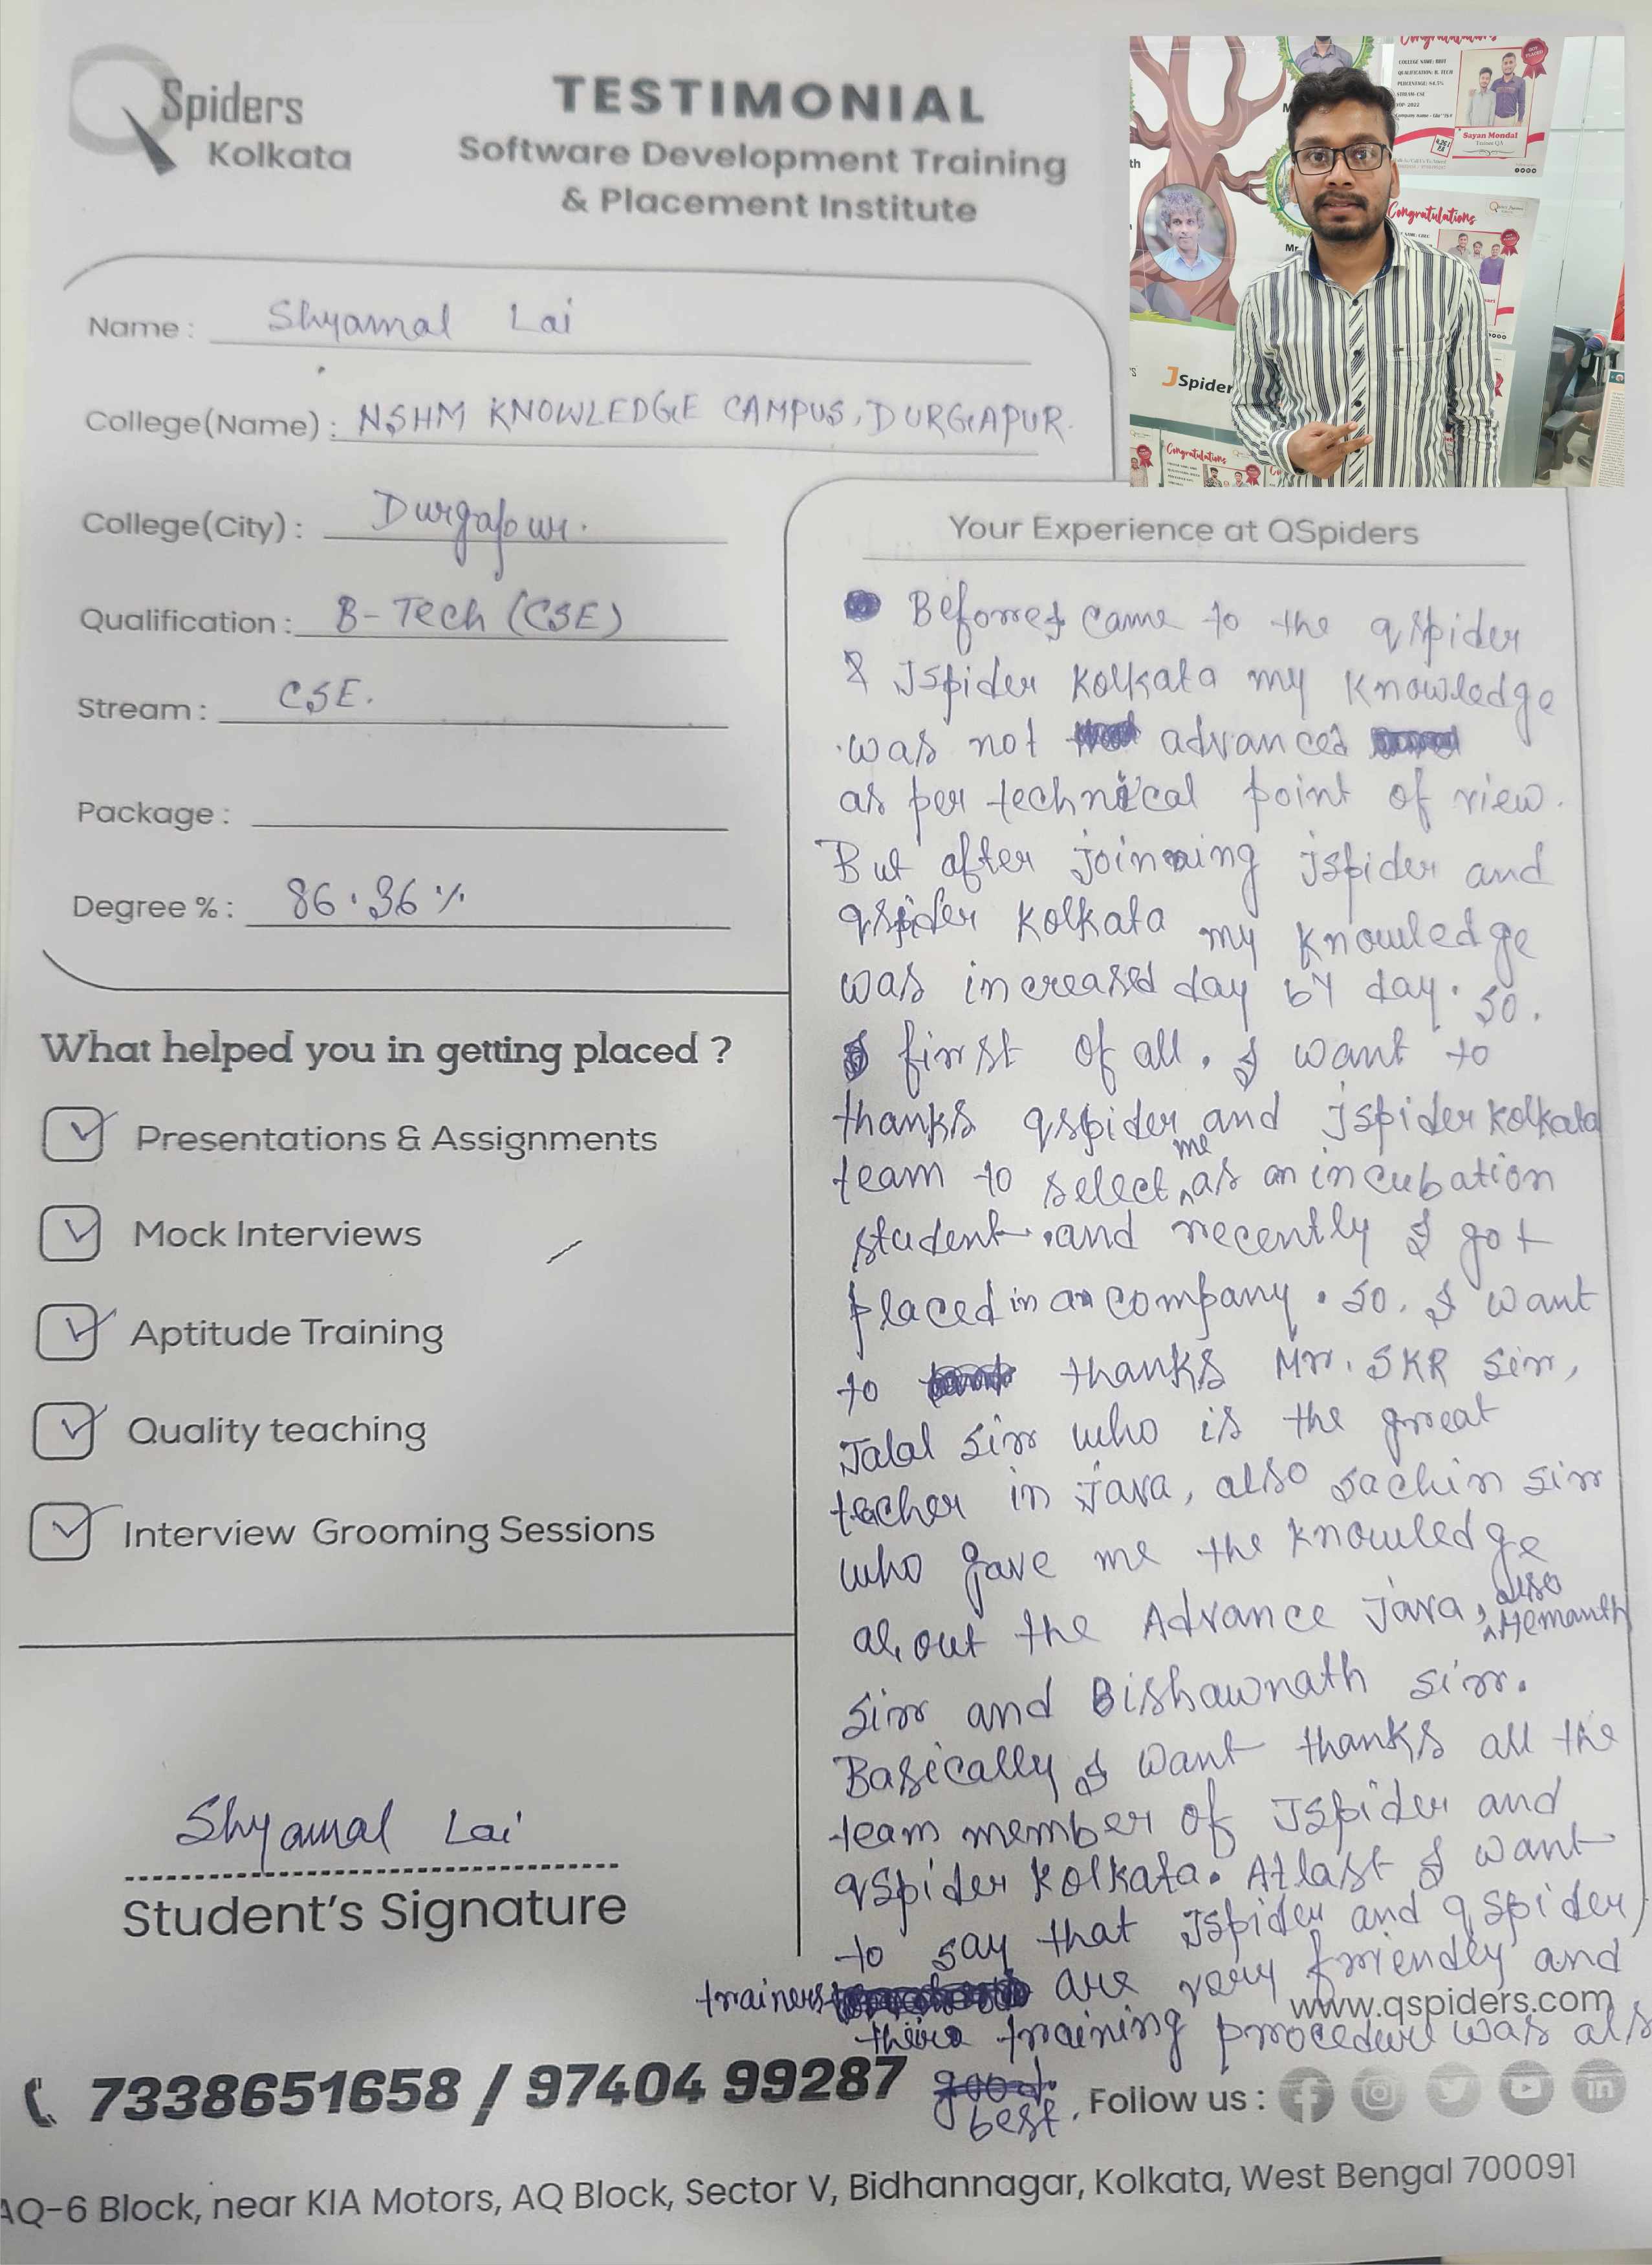 Spiders
Kolkata
TESTIMONIAL
Software Development Training
& Placement Institute
Name : Shyamal Lai
College(Name) : NSHM KNOWLEDGE CAMPUS, DURGAPUR.
College(City) : Durgapur.
Qualification : B-Tech (CSE)
Stream : CSE.
Package :
Degree % : 86.36 %
What helped you in getting placed ?
Presentations & Assignments
Mock Interviews
Aptitude Training
Quality teaching
Interview Grooming Sessions
Shyamal Lai
Student's Signature
Your Experience at QSpiders
Before I came to the qspider
& Jspider Kolkata my Knowledge
was not advanced
as per technical point of view.
But after joinning jspider and
qspider Kolkata my Knowledge
was increased day by day. So.
first of all. I want to
thanks qspider and jspider Kolkata
team to select me as an incubation
student. and recently I got
placed in a company. So. I want
to thanks Mr. SKR Sir,
Jalal Sir who is the great
teacher in java, also Sachin Sir
who gave me the Knowledge
about the Advance Java, also Hemanth
Sir and Bishawnath Sir.
Basically I want thanks all the
team member of Jspider and
qspider Kolkata. At last I want
to say that Jspider and qspider,
trainers are very friendly and
their training procedure was als
good.
best.
www.qspiders.com
7338651658 / 97404 99287
Follow us :
AQ-6 Block, near KIA Motors, AQ Block, Sector V, Bidhannagar, Kolkata, West Bengal 700091
Congratulations
COLLEGE NAME: BBIT
QUALIFICATION: B. TECH
STREAM: CSE
YOP: 2022
Sayan Mondal
Congratulations
JSpider
Congratulations